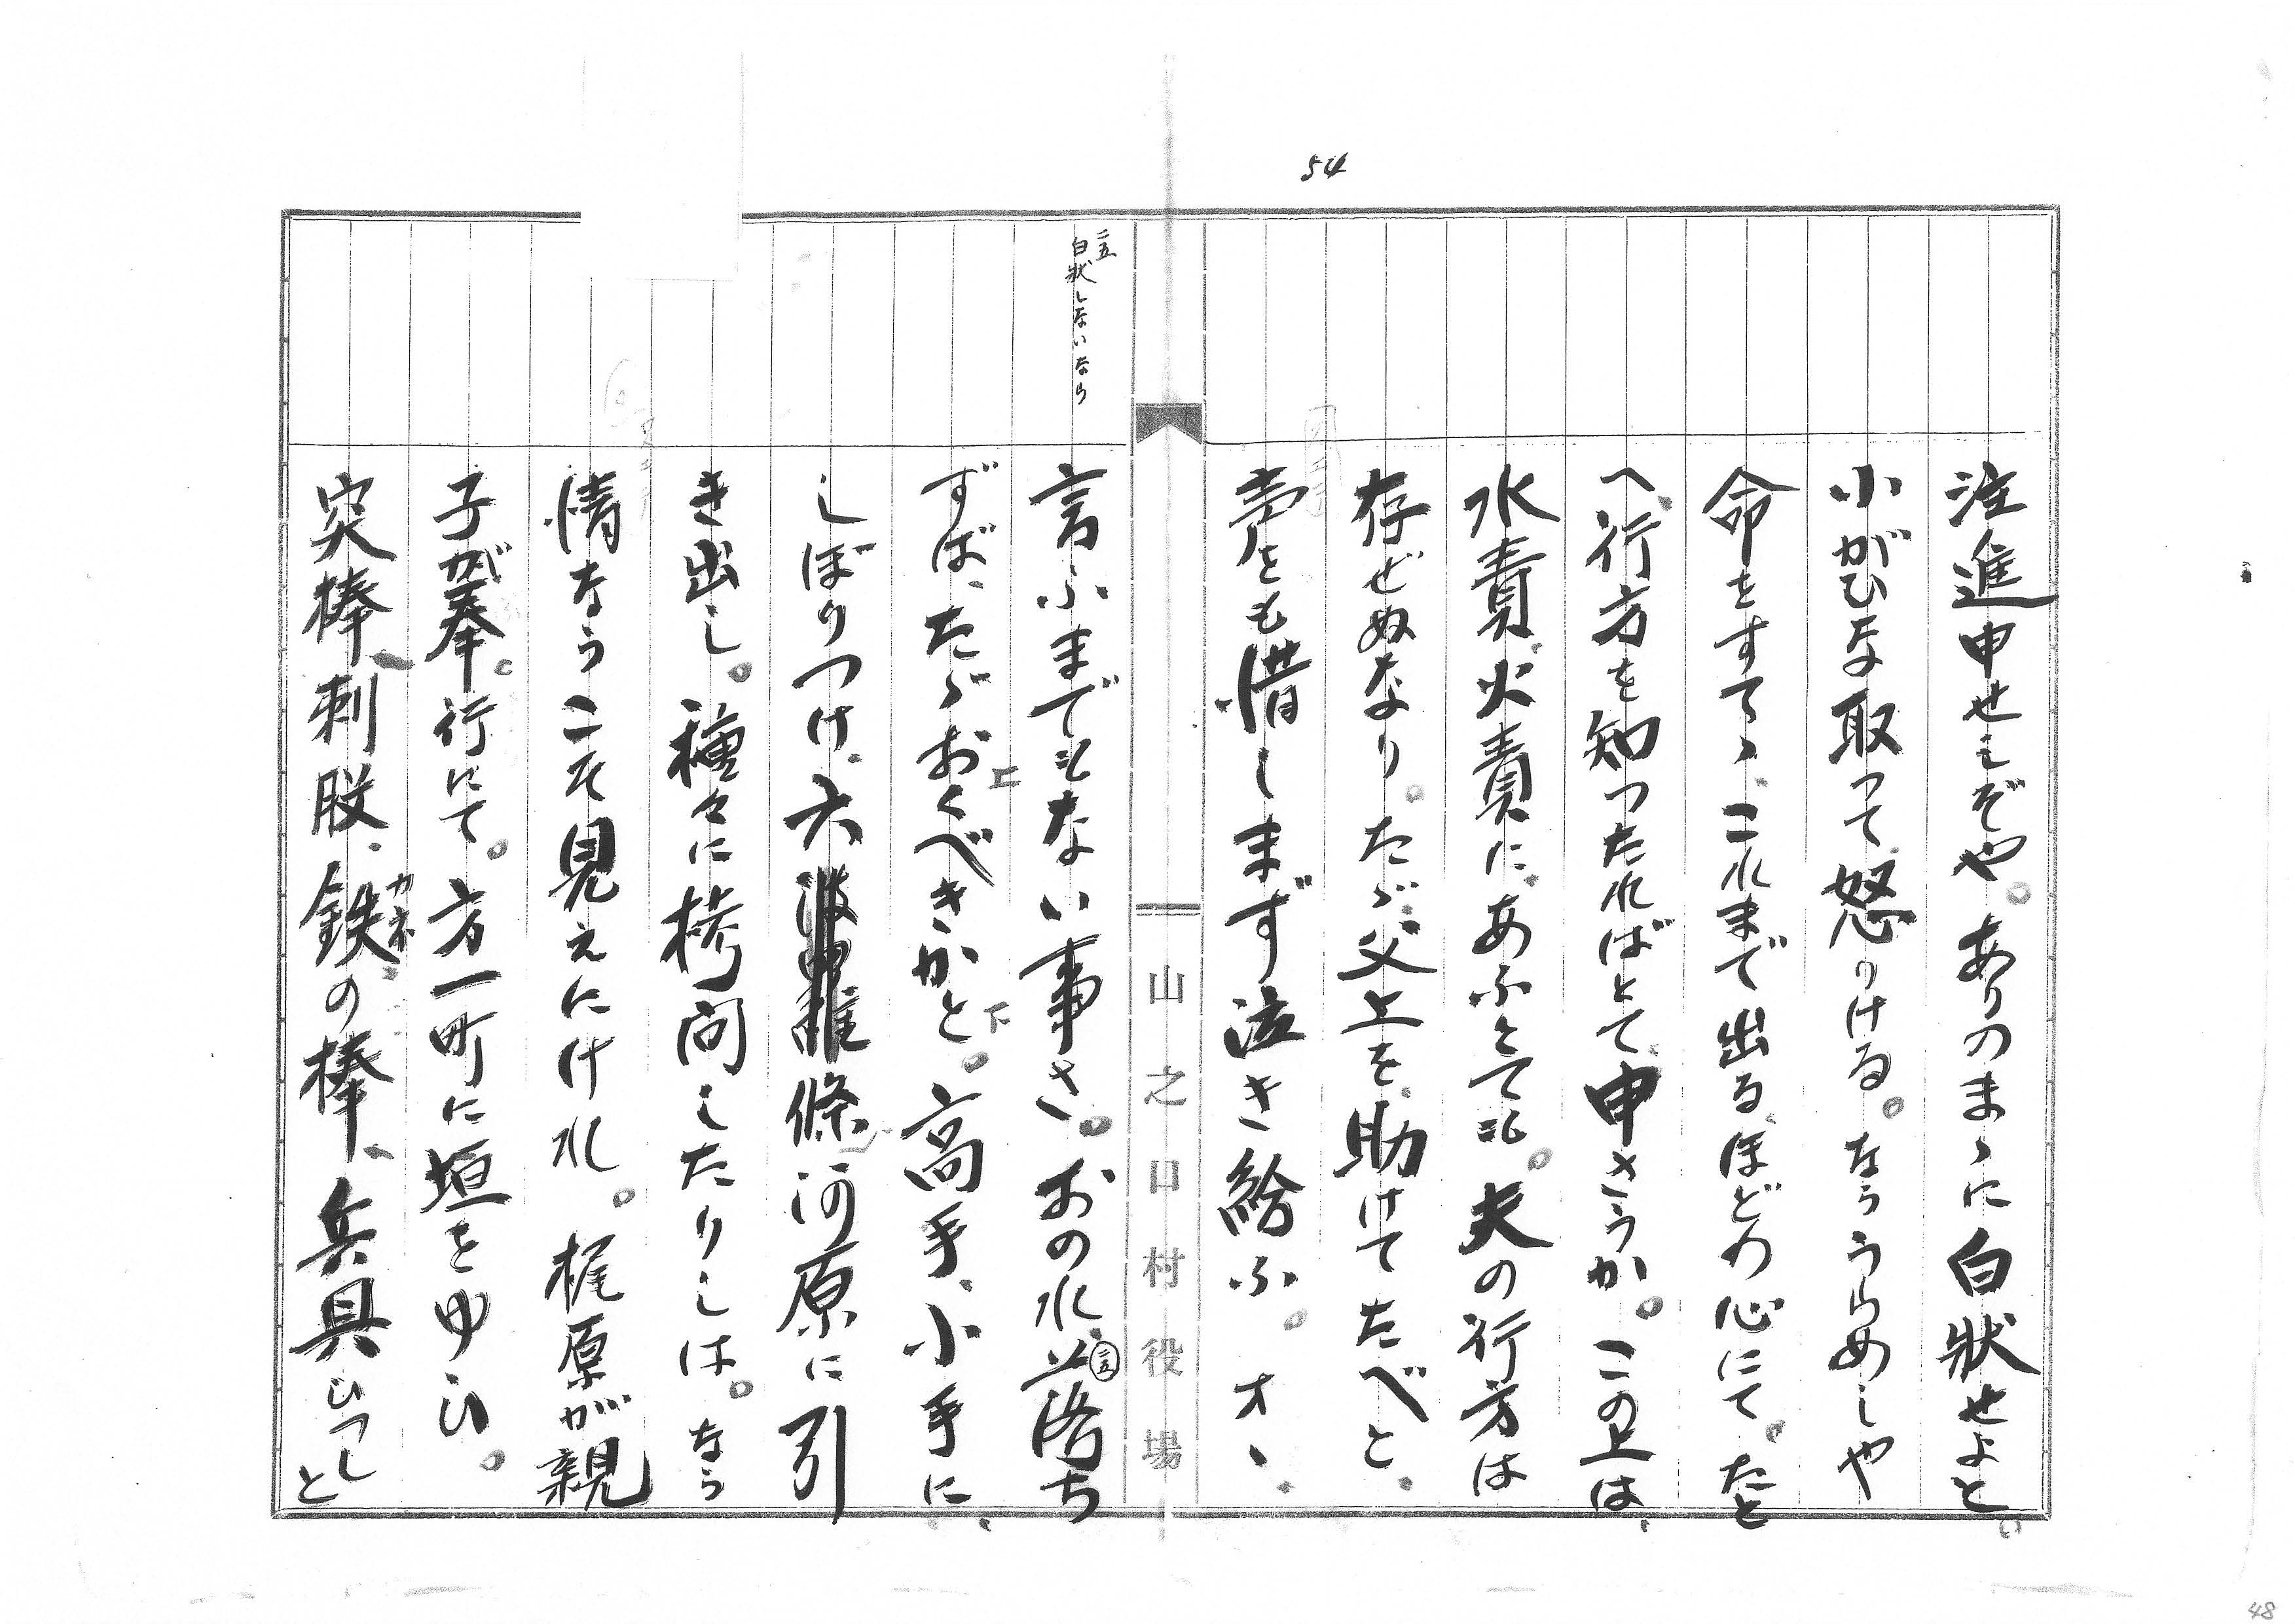 54
注進申せしぞや。ありのまゝに白狀せよと。
小がひな取って怒りける。なううらめしや
命をすてゝ、これまで出る、ほどの心にて。たと
へ、行方を知ったればとて、申さうか。この上は、
水責、火責に、あふとても。夫の行方は
存ぜぬなり。たゞ、父上を、助けてたべと、
声をも惜しまず泣き給ふ。オヽ、
二五
白狀しないなら
言ふまでもない事さ。おの水、二五落ち
ずば、たゞおくべきかと。高手、小手に、
上
下
しばりつけ、六條河原に引
き出し。種々に拷問したりしは。なさ
情なうこそ見えにけれ。梶原が親
子が奉行にて。方一町に垣をゆひ。
突棒、刺股、鉄の棒、兵具ひっしと
カネ
山之口村役場
48